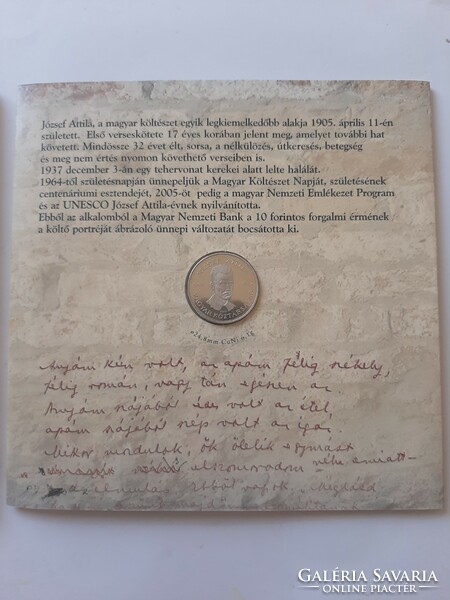 József Attila, a magyar költészet egyik legkiemelkedőbb alakja 1905. április 11-én
született. Első verseskötete 17 éves korában jelent meg, amelyet további hat
követett. Mindössze 32 évet élt, sorsa, a nélkülözés, útkeresés, betegség
és meg nem értés nyomon követhető verseiben is.
1937 december 3-án egy tehervonat kerekei alatt lelte halálát.
1964-től születésnapján ünnepeljük a Magyar Költészet Napját, születésének
centenáriumi esztendejét, 2005-öt pedig a magyar Nemzeti Emlékezet Program
és az UNESCO József Attila-évnek nyilvánította.
Ebből az alkalomból a Magyar Nemzeti Bank a 10 forintos forgalmi érmének
a költő portréját ábrázoló ünnepi változatát bocsátotta ki.
MAGYAR KÖZTÁRS
24,8mm CuNi
Anyám kún volt, az apám félig székely,
félig román, vagy tán egészen az
Anyám szájából édes volt az étel,
apám szájából szép volt az igaz.
Mikor mozdulok, ők ölelik egymást
elszomorodom néha emiatt
ebből vagyok. Meglásd
GALÉRIA SAVARIA
ONLINE PIACTÉR